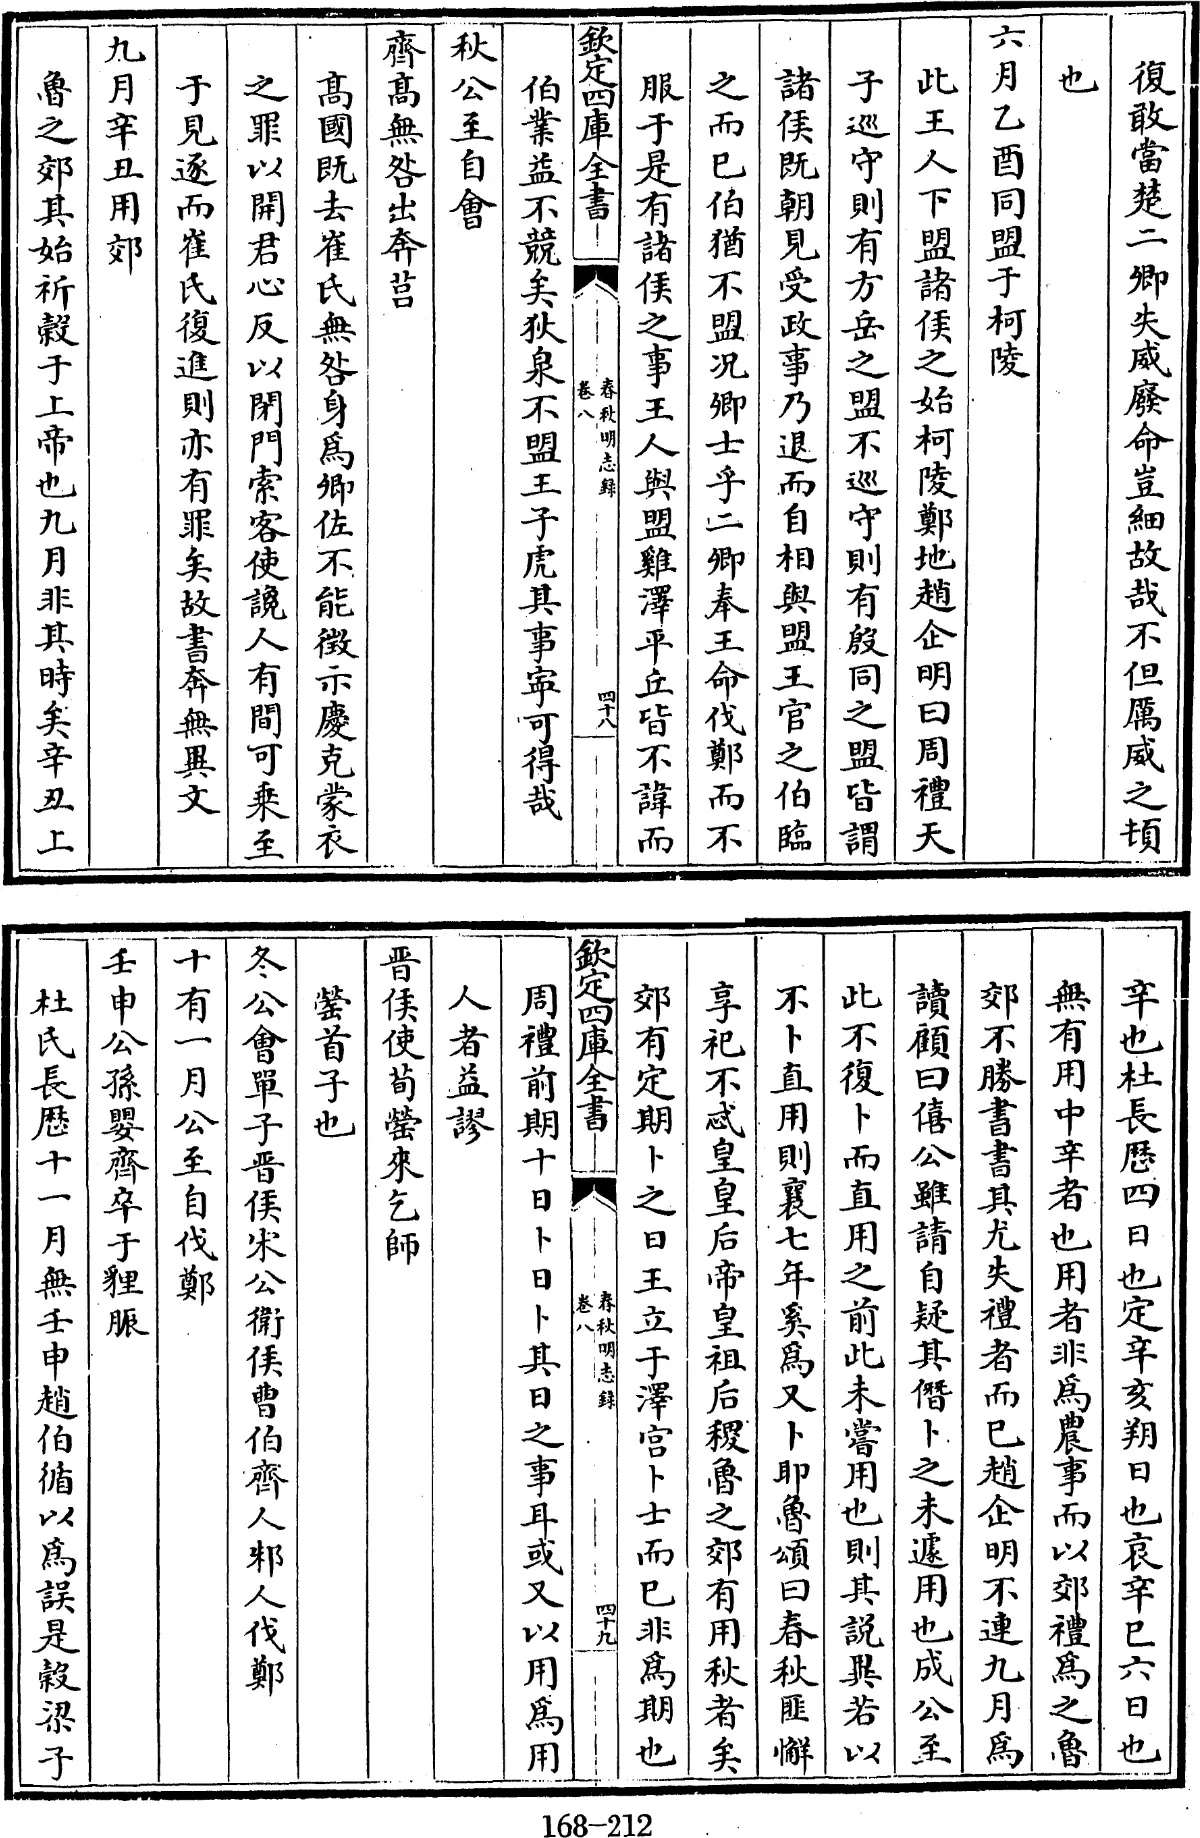 復敢當楚二卿失威廢命豈細故哉不但厲威之頓
也
六月乙酉同盟于柯陵
此王人下盟諸侯之始柯陵鄭地趙企明曰周禮天
子巡守則有方岳之盟不巡守則有殷同之盟皆謂
諸侯既朝見受政事乃退而自相與盟王官之伯臨
之而已伯猶不盟况卿士乎二卿奉王命伐鄭而不
服于是有諸侯之事王人與盟雞澤平丘皆不諱而
欽定四庫全書
春秋明志錄
卷八
四十八
伯業益不競矣狄泉不盟王子虎其事寜可得哉
秋公至自會
齊髙無咎出奔莒
髙國既去崔氏無咎身爲卿佐不能徴示慶克蒙衣
之罪以開君心反以閉門索客使讒人有間可乘至
于見逐而崔氏復進則亦有罪矣故書奔無異文
九月辛丑用郊
魯之郊其始祈穀于上帝也九月非其時矣辛丑上
辛也杜長歴四日也定辛亥朔日也哀辛巳六日也
無有用中辛者也用者非爲農事而以郊禮爲之魯
郊不勝書書其尤失禮者而已趙企明不連九月爲
讀顧曰僖公雖請自疑其僭卜之未遽用也成公至
此不復卜而直用之前此未嘗用也則其説異若以
不卜直用則襄七年奚爲又卜耶魯頌曰春秋匪懈
享祀不忒皇皇后帝皇祖后稷魯之郊有用秋者矣
郊有定期卜之日王立于澤宫卜士而已非爲期也
欽定四庫全書
春秋明志錄
卷八
四十九
周禮前期十日卜日卜其日之事耳或又以用爲用
人者益謬
晋侯使荀罃來乞師
罃首子也
冬公會單子晋侯宋公衛侯曹伯齊人邾人伐鄭
十有一月公至自伐鄭
壬申公孫嬰齊卒于貍脤
杜氏長歴十一月無壬申趙伯循以爲誤是榖梁子
168-212